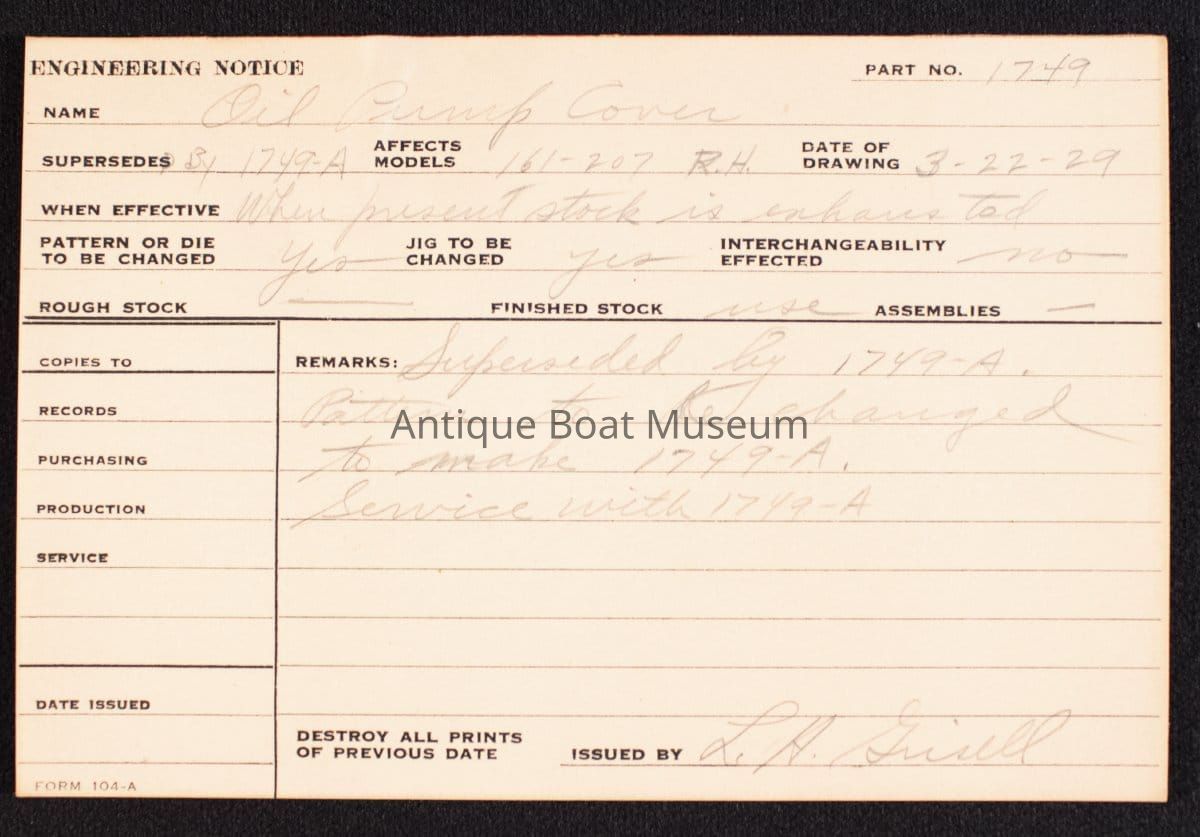 ENGINEERING NOTICE PART NO. 1749
NAME Oil Pump Cover
SUPERSEDES D By 1749-A AFFECTS MODELS 161-207 R.H. DATE OF DRAWING 3-22-29
WHEN EFFECTIVE When present stock is exhausted
PATTERN OR DIE TO BE CHANGED Yes JIG TO BE CHANGED yes INTERCHANGEABILITY EFFECTED no
ROUGH STOCK — FINISHED STOCK use ASSEMBLIES —
COPIES TO
REMARKS: Superseded by 1749-A.
RECORDS
Pattern to be changed
Antique Boat Museum
PURCHASING
to make 1749-A.
PRODUCTION
Service with 1749-A
SERVICE
DATE ISSUED
DESTROY ALL PRINTS OF PREVIOUS DATE ISSUED BY L. H. Grisell
FORM 104-A